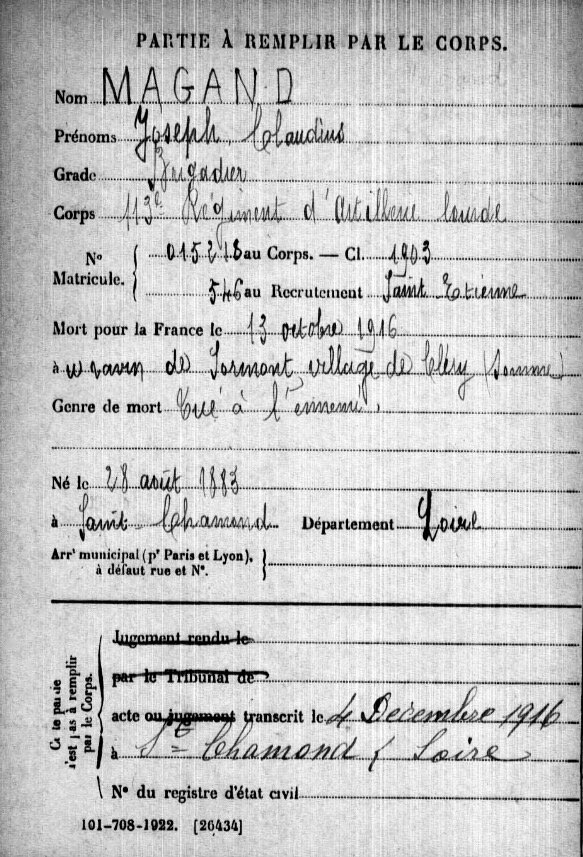 PARTIE À REMPLIR PAR LE CORPS.
Nom MAGAND
Prénoms Joseph, Claudius
Grade Brigadier
Corps 113e Régiment d'Artillerie lourde
No Matricule. 015218 au Corps. — Cl. 1903
546 au Recrutement Saint Etienne
Mort pour la France le 13 octobre 1916
à ravin de Sormont village de Cléry (Somme)
Genre de mort Tué à l'ennemi.
Né le 28 août 1883
à Saint-Chamond Département Loire
Arrt municipal (pr Paris et Lyon),
à défaut rue et No.
Cette partie
n'est pas à remplir
par le Corps.
Jugement rendu le
par le Tribunal de
acte ou jugement transcrit le 4 Décembre 1916
à St Chamond (Loire
No du registre d'état civil
101-708-1922. [26434]